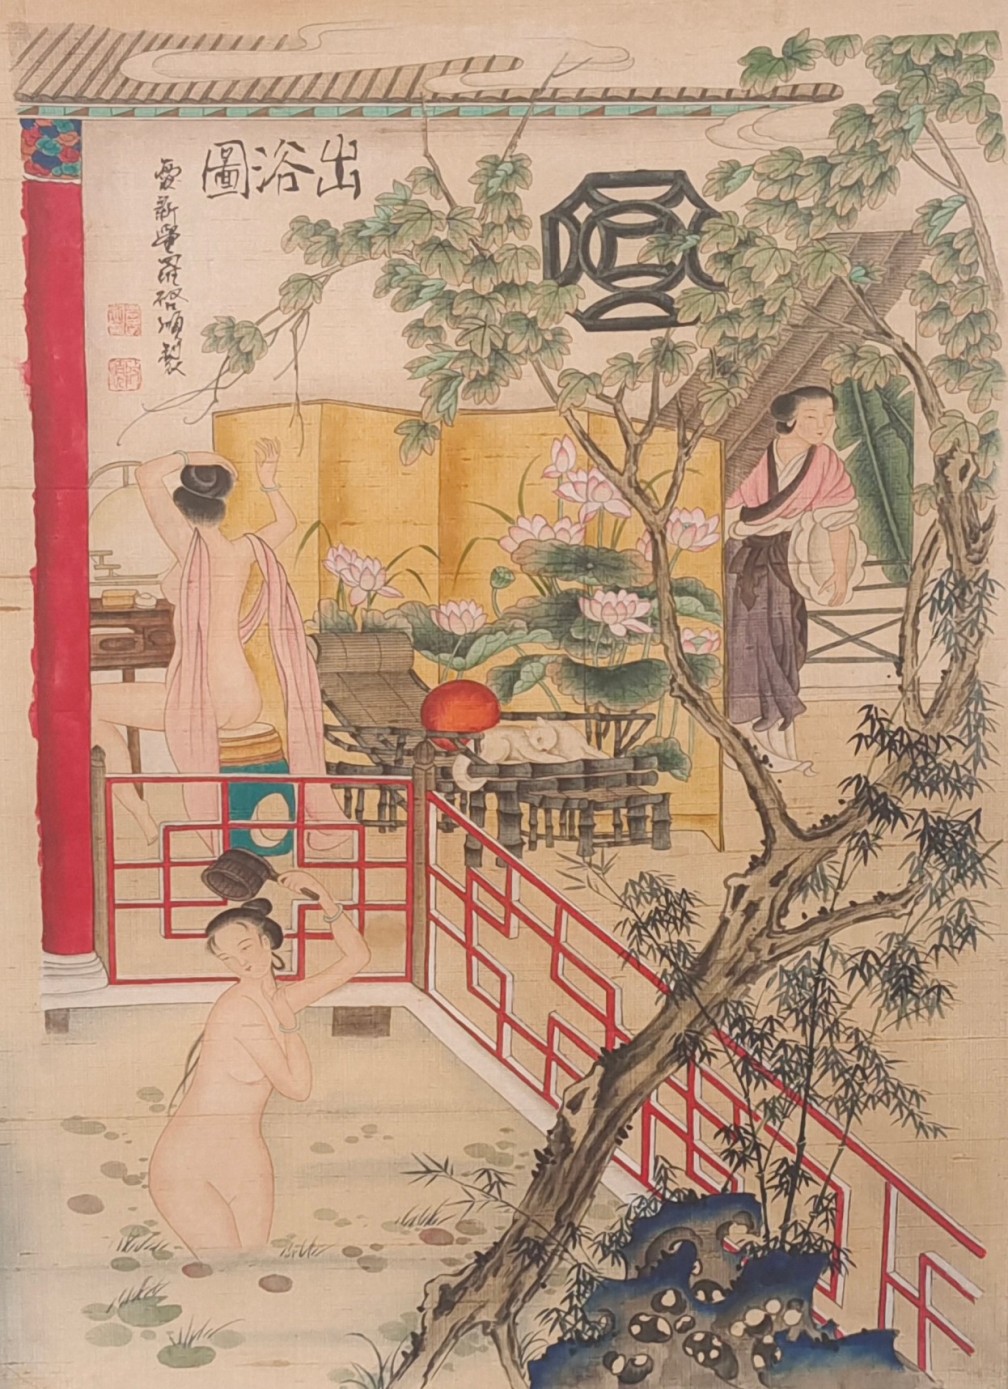 出浴圖
愛新覺羅啓順製